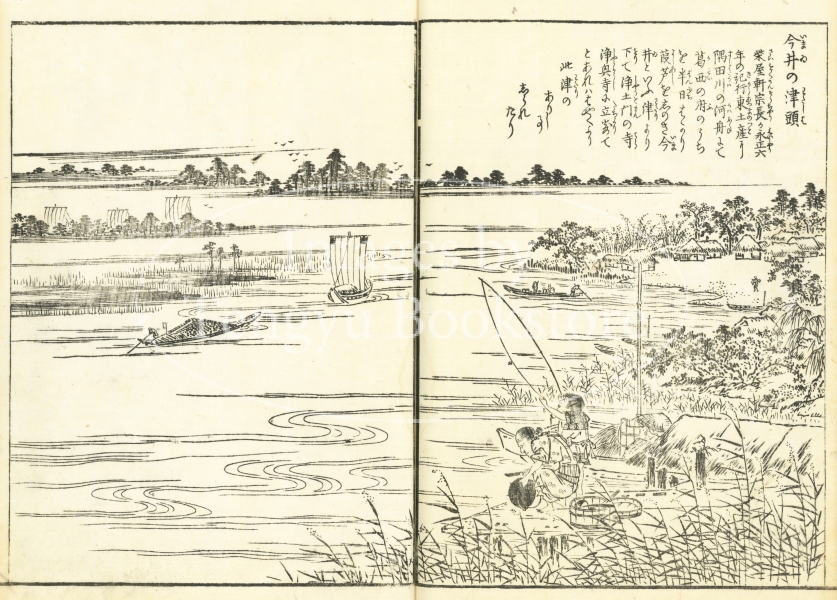 今井の津頭
柴屋軒宗長が永正六
年の記行東土産に
隅田川の河舟にて
葛西の府のうち
を半日ばかり
葭芦をしのぎ今
井といふ津より
下て浄土門の寺
浄興寺に立寄て
とあればはやくより
此津の
ありし
しられ
たり
Images by
Tengyu Bookstore